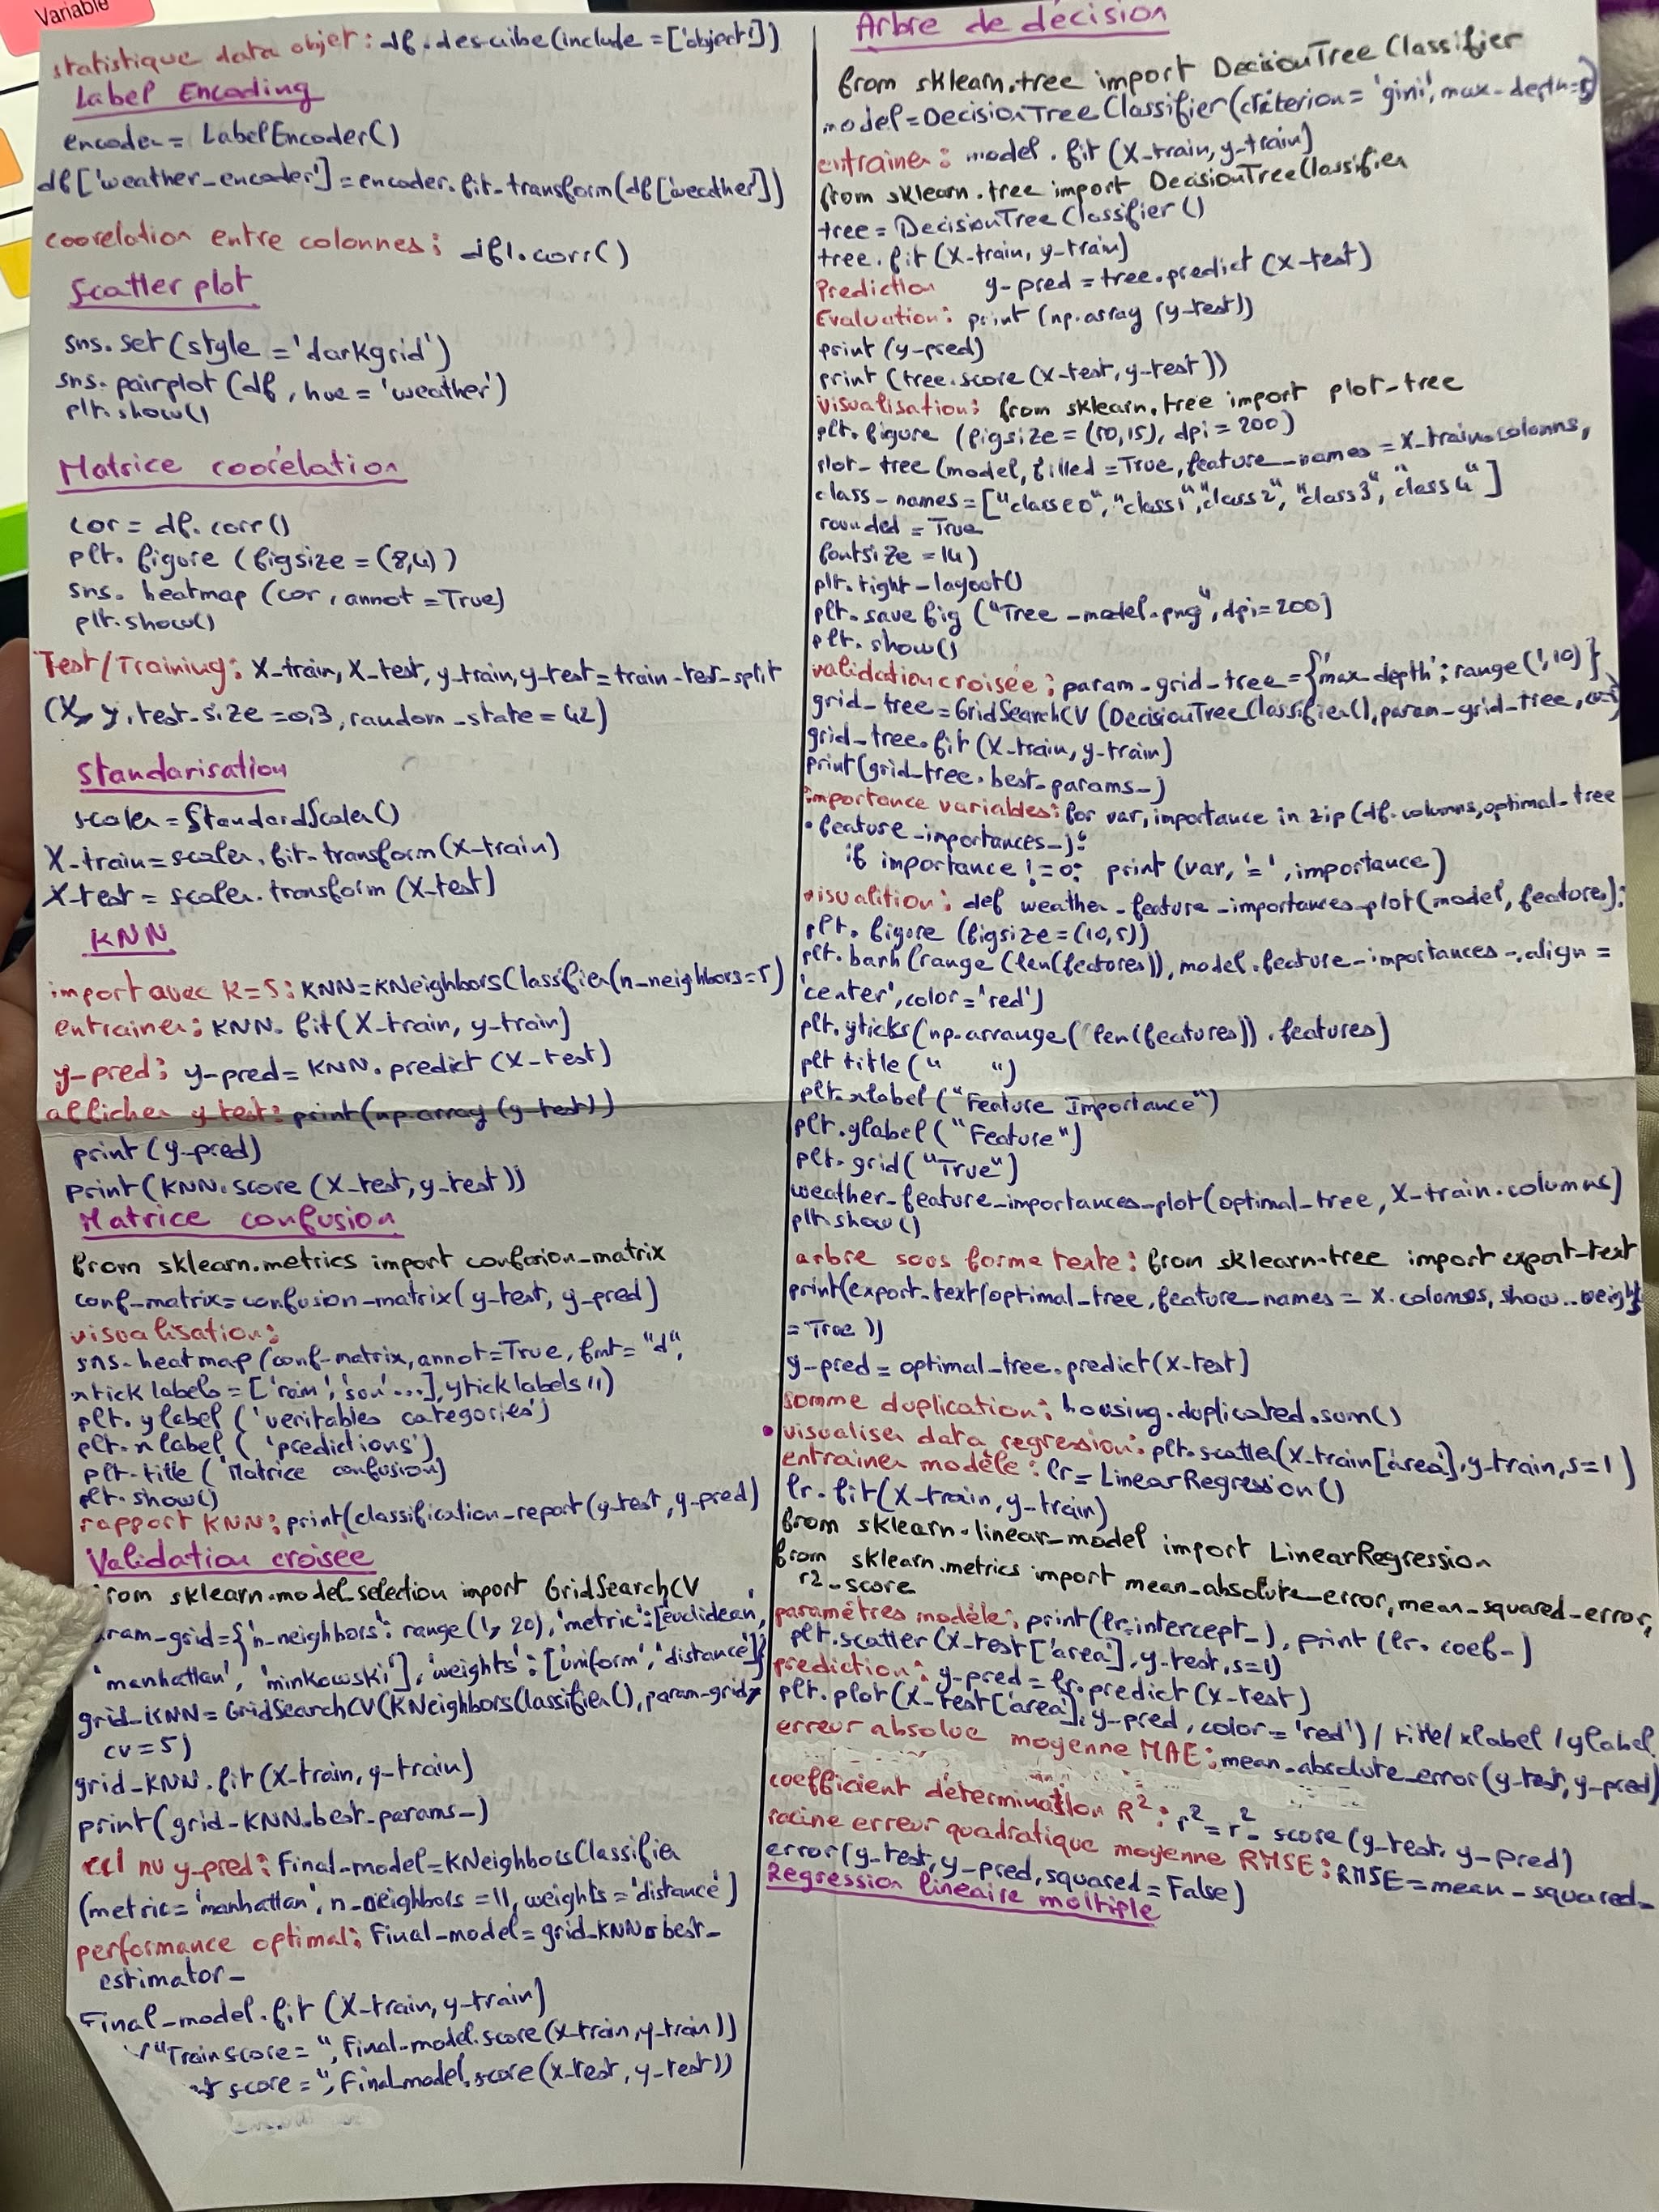 Variable
statistique data objet : df.describe(include=['object'])
Label Encoding
encoder = LabelEncoder()
df['weather_encoder'] = encoder.fit_transform(df['weather'])
coorelation entre colonnes : df1.corr()
Scatter plot
sns.set(style='darkgrid')
sns.pairplot(df, hue='weather')
plt.show()
Matrice coorélation
cor = df.corr()
plt.figure(figsize=(8,4))
sns.heatmap(cor, annot=True)
plt.show()
Test/Training : X_train, X_test, y_train, y_test = train_test_split
(X, y, test_size=0,3, random_state=42)
Standarisation
scaler = StandardScaler()
X_train = scaler.fit_transform(X_train)
X_test = scaler.transform(X_test)
KNN
import avec K=5 : KNN = KNeighborsClassifier(n_neighbors=5)
entrainer : KNN.fit(X_train, y_train)
y_pred : y_pred = KNN.predict(X_test)
afficher y test : print(np.array(y_test))
print(y_pred)
print(KNN.score(X_test, y_test))
Matrice confusion
from sklearn.metrics import confusion_matrix
conf_matrix = confusion_matrix(y_test, y_pred)
visualisation :
sns.heatmap(conf_matrix, annot=True, fmt="d",
xticklabels=['rain','sun'...], yticklabels 11)
plt.ylabel('veritables categories')
plt.xlabel('predictions')
plt.title('Matrice confusion)
plt.show()
rapport KNN : print(classification_report(y_test, y_pred)
Validation croisée
from sklearn.model_selection import GridSearchCV
ram_grid={'n_neighbors': range(1, 20), 'metric': ['euclidean',
'manhattan', 'minkowski'], 'weights': ['uniform', 'distance']}
grid_KNN = GridSearchCV(KNeighborsClassifier(), param_grid,
cv=5)
grid_KNN.fit(X_train, y_train)
print(grid_KNN.best_params_)
nv y_pred : Final_model = KNeighborsClassifier
(metric='manhattan', n_neighbors=11, weights='distance')
performance optimal : Final_model = grid_KNN.best_
estimator_
Final_model.fit(X_train, y_train)
("Train score = ", Final_model.score(X_train, y_train))
score = ", Final_model.score(X_test, y_test))
Arbre de décision
from sklearn.tree import DecisionTreeClassifier
model = DecisionTreeClassifier(criterion='gini', max_depth=5)
entrainer : model.fit(X_train, y_train)
from sklearn.tree import DecisionTreeClassifier
tree = DecisionTreeClassifier()
tree.fit(X_train, y_train)
Prediction y_pred = tree.predict(X_test)
Evaluation : print(np.array(y_test))
print(y_pred)
print(tree.score(X_test, y_test))
Visualisation : from sklearn.tree import plot_tree
plt.figure(figsize=(10,15), dpi=200)
plot_tree(model, filled=True, feature_names=X_train.colonns,
class_names=["classe0", "class1", "class2", "class3", "class4"]
rounded=True
fontsize=14)
plt.tight_layout()
plt.savefig("Tree_model.png", dpi=200)
plt.show()
validation croisée : param_grid_tree={'max_depth': range(1,10)}
grid_tree = GridSearchCV(DecisionTreeClassifier(), param_grid_tree, cv=5)
grid_tree.fit(X_train, y_train)
print(grid_tree.best_params_)
importance variables : for var, importance in zip(df.columns, optimal_tree
.feature_importances_):
if importance != 0: print(var, '=', importance)
visualition : def weather_feature_importances_plot(model, features):
plt.figure(figsize=(10,5))
plt.barh(range(len(features)), model.feature_importances_, align=
'center', color='red')
plt.yticks(np.arrange(len(features)), features)
plt title(" ")
plt.xlabel("Feature Importance")
plt.ylabel("Feature")
plt.grid("True")
weather_feature_importances_plot(optimal_tree, X_train.columns)
plt.show()
arbre sous forme texte : from sklearn.tree import export_text
print(export_text(optimal_tree, feature_names=X.colomns, show_weight
=True))
y_pred = optimal_tree.predict(X_test)
somme duplication : housing.duplicated.sum()
visualiser data regression : plt.scatter(X_train['area'], y_train, s=1)
entrainer modèle : lr = LinearRegression()
lr.fit(X_train, y_train)
from sklearn.linear_model import LinearRegression
from sklearn.metrics import mean_absolute_error, mean_squared_error,
r2_score
paramètres modèle : print(lr.intercept_), print(lr.coef_)
plt.scatter(X_test['area'], y_test, s=1)
prediction : y_pred = lr.predict(X_test)
plt.plot(X_test['area'], y_pred, color='red') / title/ xlabel / ylabel
erreur absolue moyenne MAE : mean_absolute_error(y_test, y_pred)
coefficient détermination R² : r² = r²_score(y_test, y_pred)
racine erreur quadratique moyenne RMSE : RMSE = mean_squared_
error(y_test, y_pred, squared=False)
Regression lineaire multiple